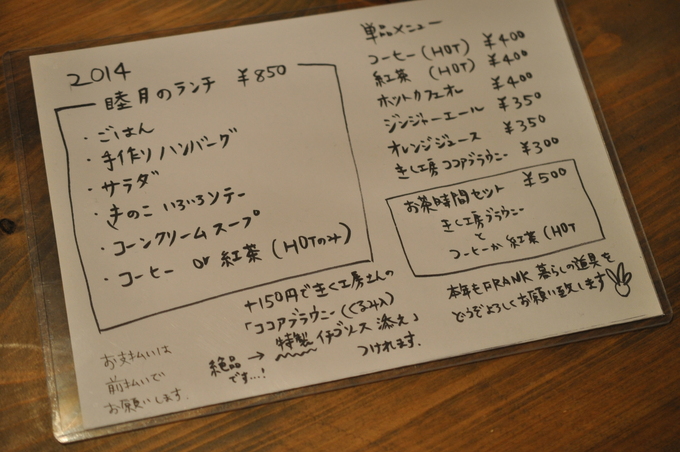 2014
睦月のランチ ¥850
・ごはん
・手作りハンバーグ
・サラダ
・きのこいろいろソテー
・コーンクリームスープ
・コーヒー or 紅茶 (HOTのみ)
+150円できく工房さんの
「ココアブラウニー(くるみ入)
特製イチゴソース添え」
つけれます.
絶品です…! →
お支払いは
前払いで
お願いします.
単品メニュー
コーヒー (HOT) ¥400
紅茶 (HOT) ¥400
ホットカフェオレ ¥400
ジンジャーエール ¥350
オレンジジュース ¥350
きく工房ココアブラウニー ¥300
お茶時間セット ¥500
きく工房ブラウニー
と
コーヒーか紅茶 (HOT
本年もFRANK暮らしの道具を
どうぞよろしくお願い致します